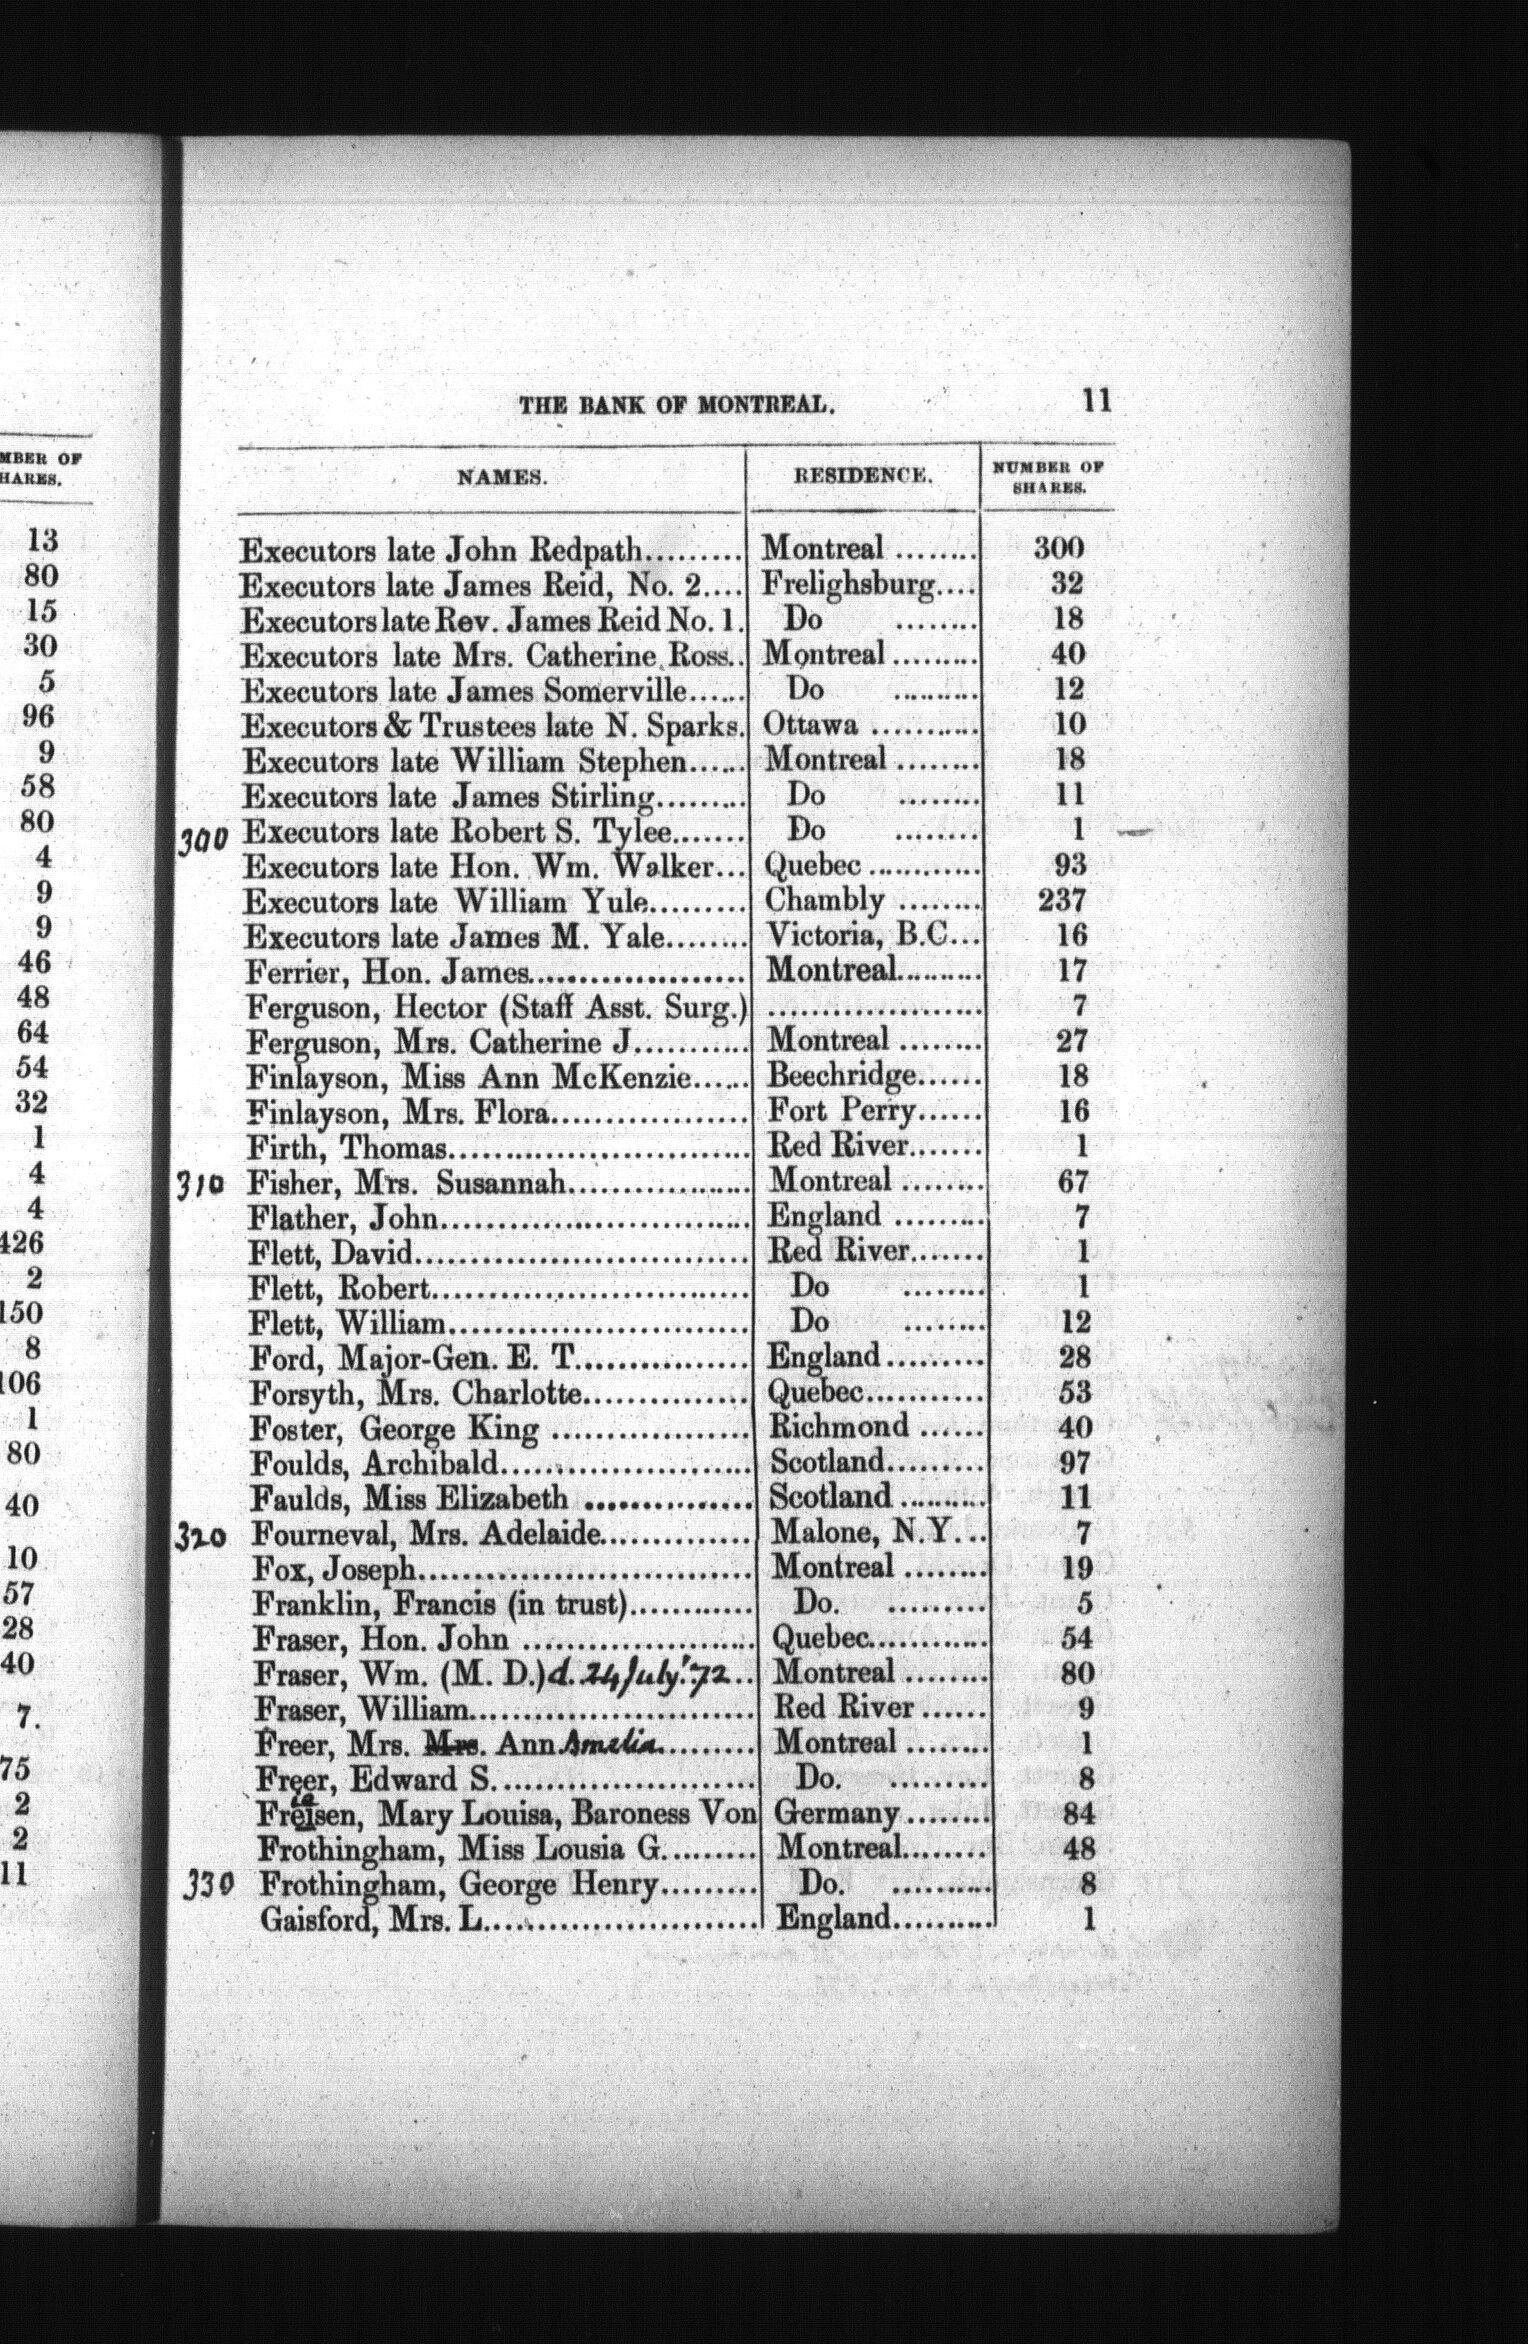 MBER OF
HARES.
13
80
15
30
5
96
9
58
80
4
9
9
46
48
64
54
32
1
4
4
426
2
150
8
106
1
80
40
10
57
28
40
7.
75
2
2
11
THE BANK OF MONTREAL. 11
NAMES. RESIDENCE. NUMBER OF SHARES.
Executors late John Redpath......... Montreal ........ 300
Executors late James Reid, No. 2.... Frelighsburg.... 32
Executors late Rev. James Reid No. 1. Do ........ 18
Executors late Mrs. Catherine Ross.. Montreal ......... 40
Executors late James Somerville...... Do .......... 12
Executors & Trustees late N. Sparks. Ottawa ........... 10
Executors late William Stephen...... Montreal ........ 18
Executors late James Stirling......... Do ........ 11
300 Executors late Robert S. Tylee....... Do ........ 1 —
Executors late Hon. Wm. Walker... Quebec ............ 93
Executors late William Yule......... Chambly ........ 237
Executors late James M. Yale........ Victoria, B.C... 16
Ferrier, Hon. James.................... Montreal.......... 17
Ferguson, Hector (Staff Asst. Surg.) .................... 7
Ferguson, Mrs. Catherine J........... Montreal ........ 27
Finlayson, Miss Ann McKenzie...... Beechridge...... 18
Finlayson, Mrs. Flora.................. Fort Perry...... 16
Firth, Thomas........................... Red River....... 1
310 Fisher, Mrs. Susannah................. Montreal ........ 67
Flather, John............................ England ......... 7
Flett, David.............................. Red River....... 1
Flett, Robert............................ Do ........ 1
Flett, William........................... Do ........ 12
Ford, Major-Gen. E. T............... England......... 28
Forsyth, Mrs. Charlotte............... Quebec........... 53
Foster, George King .................. Richmond ...... 40
Foulds, Archibald....................... Scotland......... 97
Faulds, Miss Elizabeth ............... Scotland ......... 11
320 Fourneval, Mrs. Adelaide.............. Malone, N.Y... 7
Fox, Joseph.............................. Montreal ........ 19
Franklin, Francis (in trust)........... Do. ......... 5
Fraser, Hon. John ..................... Quebec............ 54
Fraser, Wm. (M. D.) d. 24 July '72.. Montreal ........ 80
Fraser, William.......................... Red River ...... 9
Freer, Mrs. Mrs. Ann Amelia......... Montreal ........ 1
Freer, Edward S........................ Do. ......... 8
ie
Freisen, Mary Louisa, Baroness Von Germany ........ 84
Frothingham, Miss Lousia G......... Montreal........ 48
330 Frothingham, George Henry......... Do. .......... 8
Gaisford, Mrs. L......................... England.......... 1